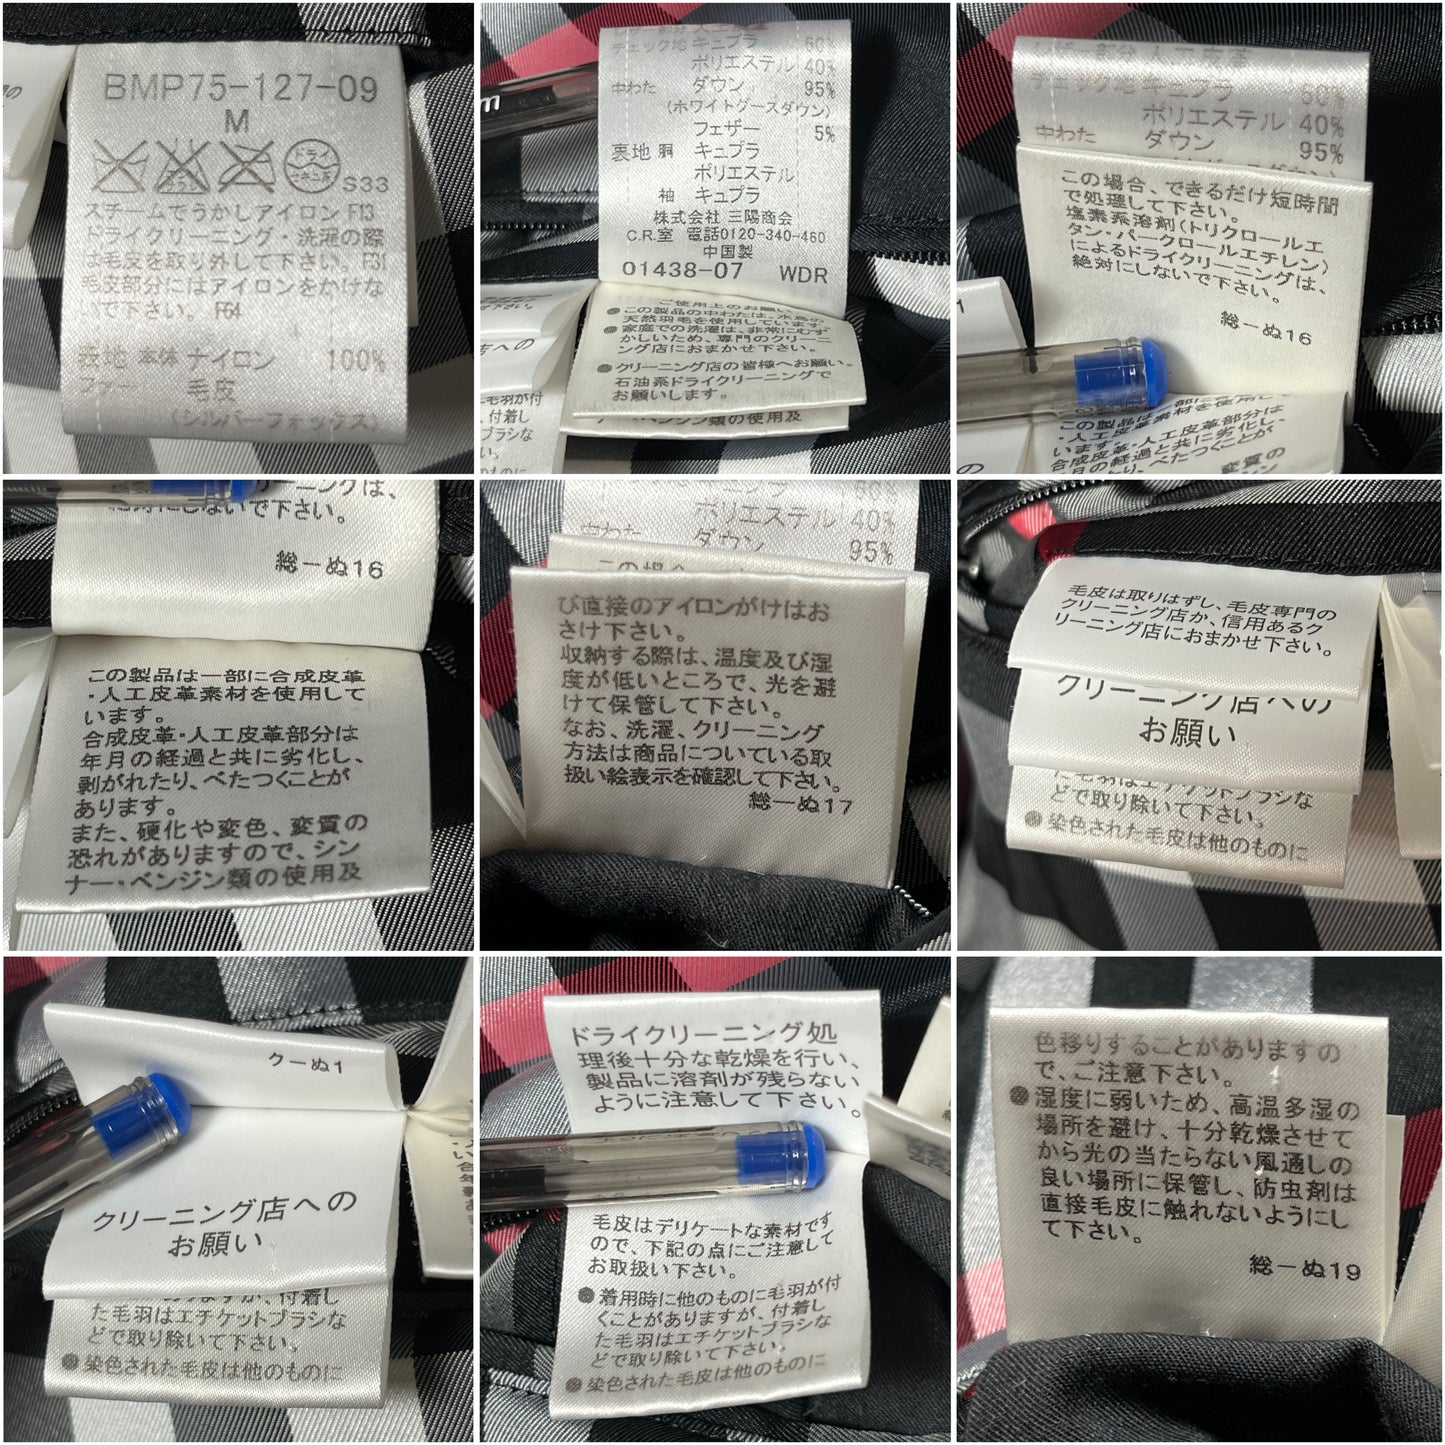 BMP75-127-09
M
ドライ
セキユ系
S33
スチームでうかしアイロン F13
ドライクリーニング・洗濯の際
は毛皮を取り外して下さい。F31
毛皮部分にはアイロンをかけな
いで下さい。F64
表地 本体 ナイロン 100%
ファー 毛皮
(シルバーフォックス)
チェック地 キュプラ 60%
ポリエステル 40%
中わた ダウン 95%
(ホワイトグースダウン)
フェザー 5%
裏地 胴 キュプラ
ポリエステル
袖 キュプラ
株式会社 三陽商会
C.R.室 電話0120-340-460
中国製
01438-07 WDR
ご使用上のお願い
●この製品の中わたは、水鳥の
天然羽毛を使用しています。
●家庭での洗濯は、非常にむず
かしいため、専門のクリーニ
ング店におまかせ下さい。
●クリーニング店の皆様へお願い。
石油系ドライクリーニングで
お願いします。
ナー・ベンジン類の使用及
人工皮革
チェック地 キュプラ 60%
ポリエステル 40%
中わた ダウン 95%
この場合、できるだけ短時間
で処理して下さい。
塩素系溶剤(トリクロールエ
タン・パークロールエチレン)
によるドライクリーニングは、
絶対にしないで下さい。
総－ぬ16
・人工皮革素材を使用して
います。
合成皮革・人工皮革部分は
年月の経過と共に劣化し、
ーニングは、
絶対にしないで下さい。
総－ぬ16
この製品は一部に合成皮革
・人工皮革素材を使用して
います。
合成皮革・人工皮革部分は
年月の経過と共に劣化し、
剥がれたり、べたつくことが
あります。
また、硬化や変色、変質の
恐れがありますので、シン
ナー・ベンジン類の使用及
キュプラ 60%
ポリエステル 40%
中わた ダウン 95%
び直接のアイロンがけはお
さけ下さい。
収納する際は、温度及び湿
度が低いところで、光を避
けて保管して下さい。
なお、洗濯、クリーニング
方法は商品についている取
扱い絵表示を確認して下さい。
総－ぬ17
毛皮は取りはずし、毛皮専門の
クリーニング店か、信用あるク
リーニング店におまかせ下さい。
クリーニング店への
お願い
た毛羽はエチケットブラシな
どで取り除いて下さい。
●染色された毛皮は他のものに
クーぬ1
クリーニング店への
お願い
た毛羽はエチケットブラシな
どで取り除いて下さい。
●染色された毛皮は他のものに
ドライクリーニング処
理後十分な乾燥を行い、
製品に溶剤が残らない
ように注意して下さい。
毛皮はデリケートな素材です
ので、下記の点にご注意して
お取扱い下さい。
●着用時に他のものに毛羽が付
くことがありますが、付着し
た毛羽はエチケットブラシな
どで取り除いて下さい。
●染色された毛皮は他のものに
色移りすることがありますの
で、ご注意下さい。
●湿度に弱いため、高温多湿の
場所を避け、十分乾燥させて
から光の当たらない風通しの
良い場所に保管し、防虫剤は
直接毛皮に触れないようにし
て下さい。
総－ぬ19